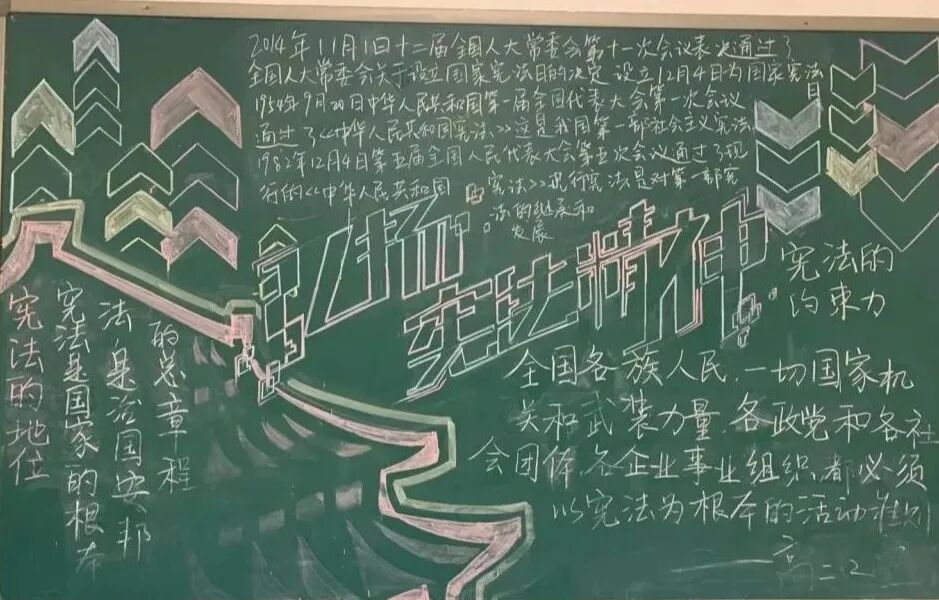 2014年11月1日十二届全国人大常委会第十一次会议表决通过了
全国人大常委会关于设立国家宪法日的决定 设立12月4日为国家宪法日
1954年9月20日中华人民共和国第一届全国代表大会第一次会议
通过了《中华人民共和国宪法》这是我国第一部社会主义宪法
1982年12月4日第五届全国人民代表大会第五次会议通过了现
行的《中华人民共和国宪法》现行宪法是对第一部宪
法的继承和
发展
弘扬
宪法精神
宪法的地位
宪法是国家的根本
法,是治国安邦
的总章程
宪法的
约束力
全国各族人民,一切国家机
关和武装力量,各政党和各社
会团体,各企业事业组织,都必须
以宪法为根本的活动准则
——高二2